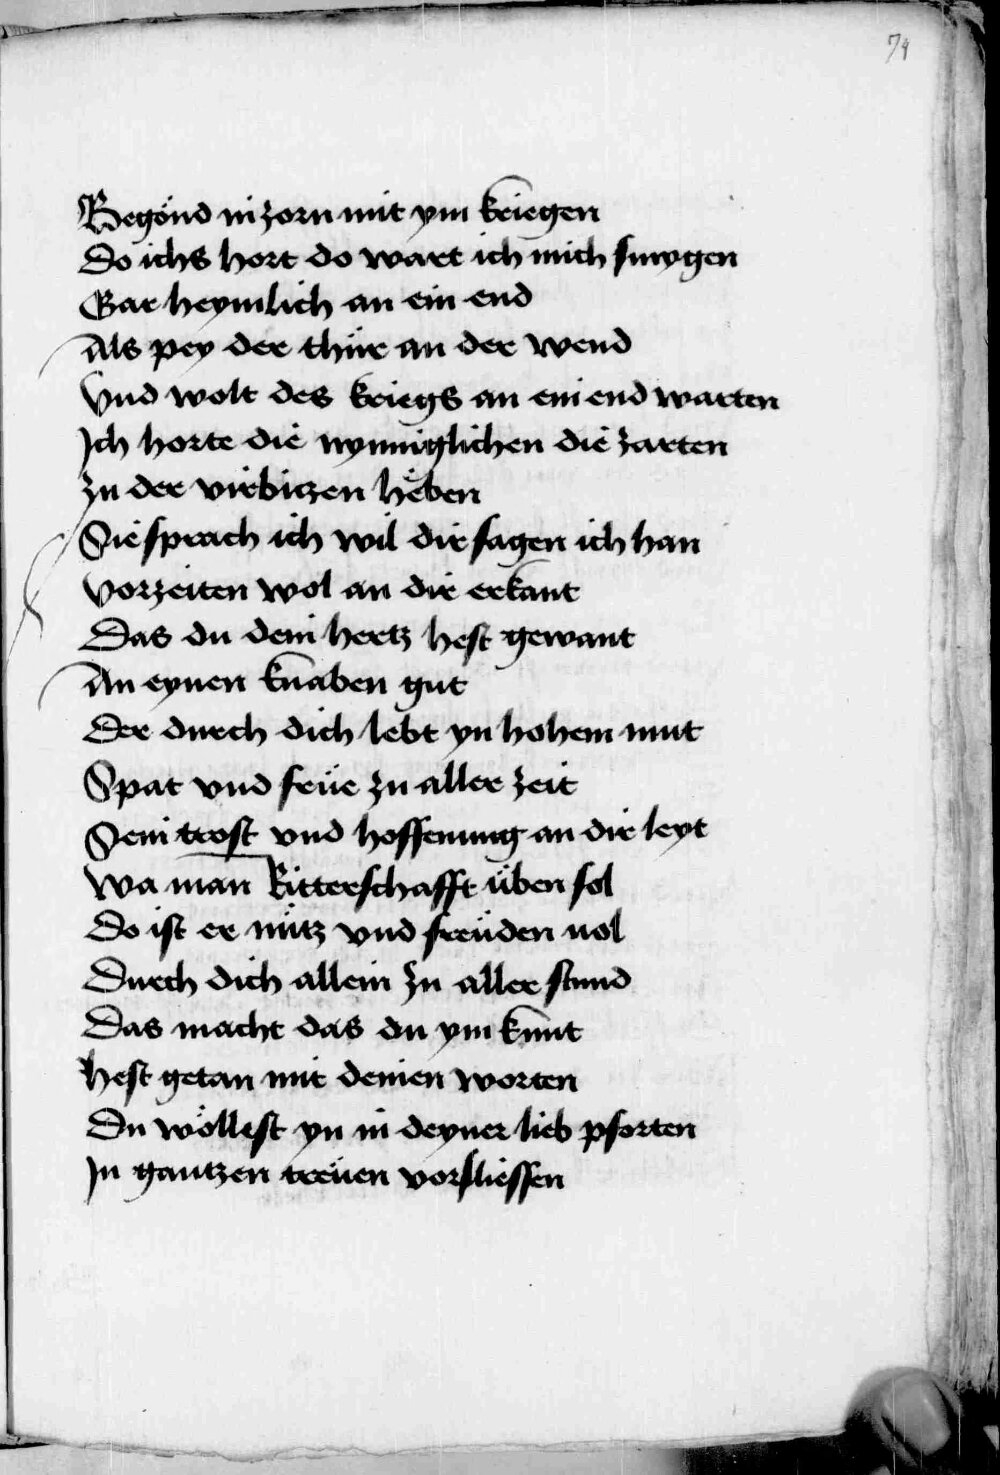 74
Begönd in zorn mit ym kriegen
Do ichs hort do wart ich mich smygen
Gar heymlich an ein end
Als pey der thür an der wend
Vnd wolt des kriegs an ein end warten
Ich horte die mynniglichen die zarten
Zu der virbitzen heben
Sie sprach ich wil dir sagen ich han
Vorzeiten wol an dir erkant
Das du dein hertz hest gewant
An eynen knaben gut
Der durch dich lebt yn hohem mut
Spat vnd früe zu aller zeit
Sein trost vnd hoffenung an dir leyt
Wa man Ritterschafft üben sol
Do ist er nütz vnd freüden uol
Durch dich allein zu aller stund
Das macht das du ym kunt
Hest getan mit deinen worten
Du wöllest yn in deyner lieb pforten
In gantzen treüen vorsliessen